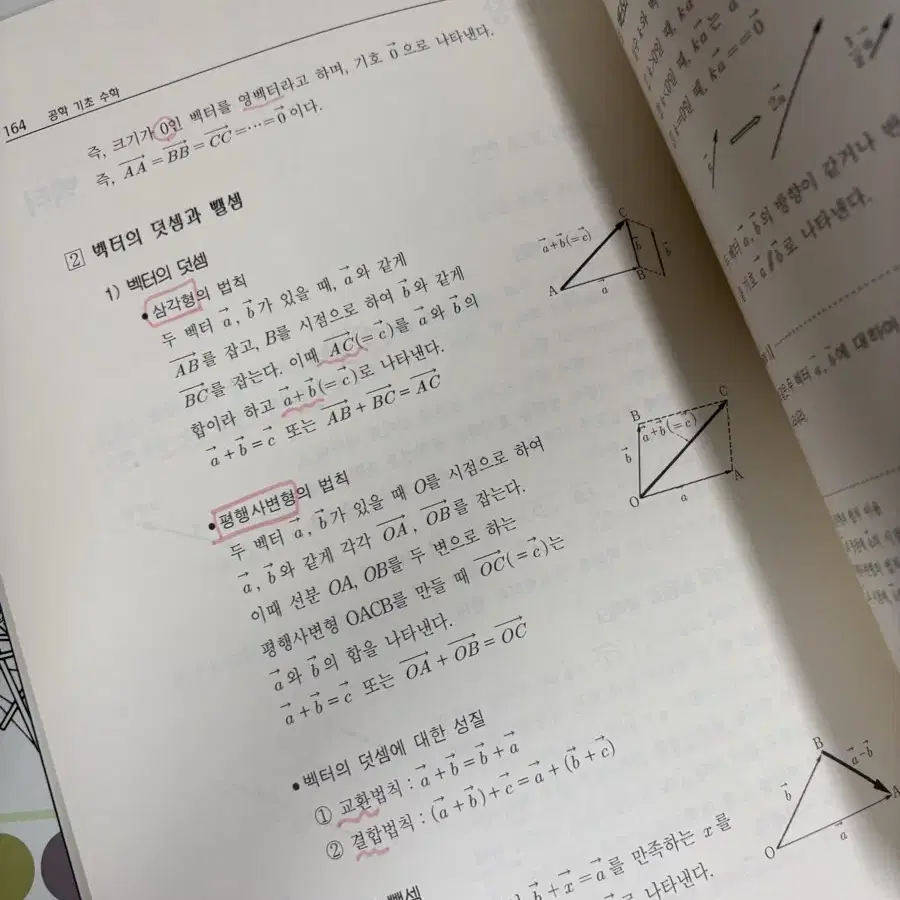 164 공학 기초 수학
즉, 크기가 0인 벡터를 영벡터라고 하며, 기호 $\vec{0}$으로 나타낸다.
즉, $\overrightarrow{AA}=\overrightarrow{BB}=\overrightarrow{CC}=\cdots=\vec{0}$이다.
2 벡터의 덧셈과 뺄셈
1) 벡터의 덧셈
• 삼각형의 법칙
두 벡터 $\vec{a}$, $\vec{b}$가 있을 때, $\vec{a}$와 같게
$\overrightarrow{AB}$를 잡고, B를 시점으로 하여 $\vec{b}$와 같게
$\overrightarrow{BC}$를 잡는다. 이때 $\overrightarrow{AC}(=\vec{c})$를 $\vec{a}$와 $\vec{b}$의
합이라 하고 $\vec{a}+\vec{b}(=\vec{c})$로 나타낸다.
$\vec{a}+\vec{b}=\vec{c}$ 또는 $\overrightarrow{AB}+\overrightarrow{BC}=\overrightarrow{AC}$
C
$\vec{a}+\vec{b}(=\vec{c})$
$\vec{b}$
$\vec{b}$
A
$\vec{a}$
B
• 평행사변형의 법칙
두 벡터 $\vec{a}$, $\vec{b}$가 있을 때 O를 시점으로 하여
$\vec{a}$, $\vec{b}$와 같게 각각 $\overrightarrow{OA}$, $\overrightarrow{OB}$를 잡는다.
이때 선분 OA, OB를 두 변으로 하는
평행사변형 OACB를 만들 때 $\overrightarrow{OC}(=\vec{c})$는
$\vec{a}$와 $\vec{b}$의 합을 나타낸다.
$\vec{a}+\vec{b}=\vec{c}$ 또는 $\overrightarrow{OA}+\overrightarrow{OB}=\overrightarrow{OC}$
C
B
$\vec{a}+\vec{b}(=\vec{c})$
$\vec{b}$
A
O
$\vec{a}$
• 벡터의 덧셈에 대한 성질
① 교환법칙 : $\vec{a}+\vec{b}=\vec{b}+\vec{a}$
② 결합법칙 : $(\vec{a}+\vec{b})+\vec{c}=\vec{a}+(\vec{b}+\vec{c})$
B
$\vec{a}-\vec{b}$
$\vec{b}$
A
O
$\vec{a}$
뺄셈
$\vec{b}+\vec{x}=\vec{a}$를 만족하는 $x$를
로 나타낸다.
$k>0$일 때, $k\vec{a}$는
$k<0$일 때, $k\vec{a}$
$k=0$일 때, $k\vec{a}=\vec{0}$
$2\vec{a}$
$\vec{a}$, $\vec{b}$의 방향이 같거나
기호 $\vec{a}/\!/\vec{b}$로 나타낸다.
$\vec{a}$, $\vec{b}$에 대하여